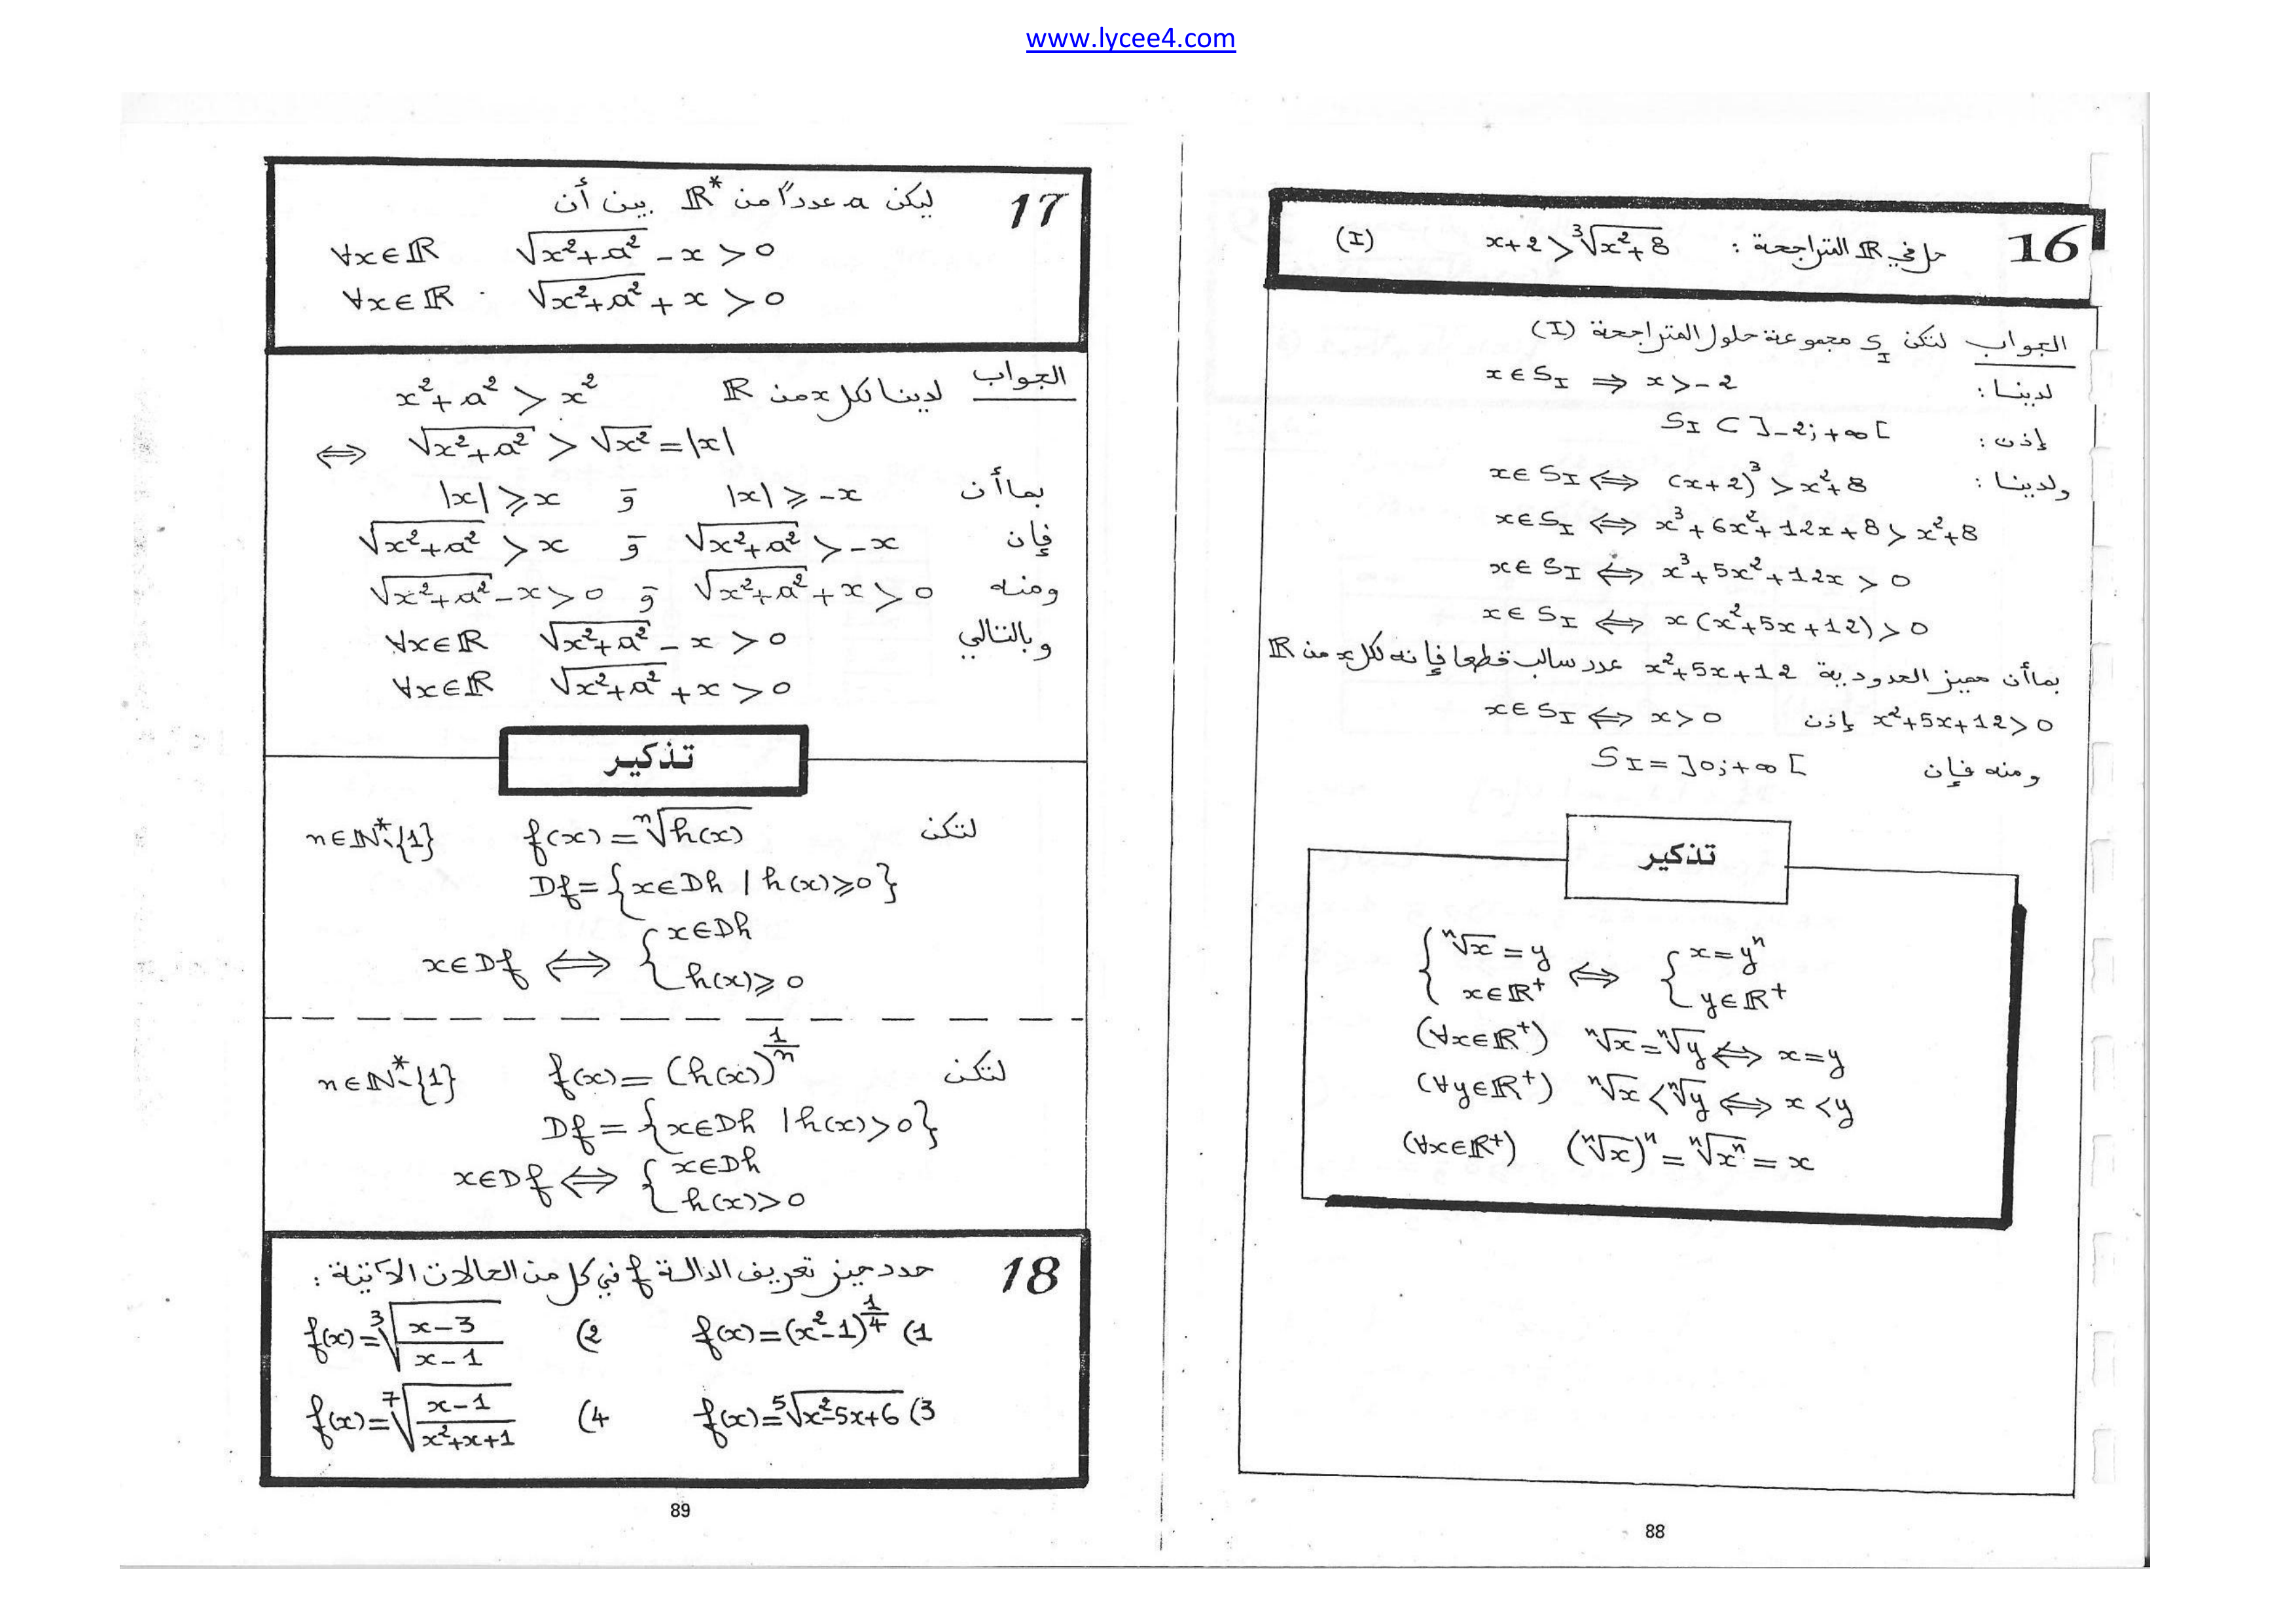 www.lycee4.com
16 حل في ℝ المتراجحة : x+2 > ∛(x²+8) (I)
الجواب لتكن S_I مجموعة حلول المتراجحة (I)
لدينا : x∈S_I ⇒ x>-2
إذن : S_I ⊂ ]-2;+∞[
ولدينا : x∈S_I ⇔ (x+2)³ > x²+8
x∈S_I ⇔ x³+6x²+12x+8 > x²+8
x∈S_I ⇔ x³+5x²+12x > 0
x∈S_I ⇔ x(x²+5x+12) > 0
بما أن مميز الحدودية x²+5x+12 عدد سالب قطعا فإنه لكل x من ℝ
x²+5x+12>0 إذن x∈S_I ⇔ x>0
ومنه فإن S_I = ]0;+∞[
تذكير
{ ⁿ√x = y ⇔ { x=yⁿ
x∈ℝ⁺ y∈ℝ⁺
(∀x∈ℝ⁺) ⁿ√x = ⁿ√y ⇔ x=y
(∀y∈ℝ⁺) ⁿ√x < ⁿ√y ⇔ x<y
(∀x∈ℝ⁺) (ⁿ√x)ⁿ = ⁿ√xⁿ = x
88
17 ليكن a عدداً من ℝ* بين أن
∀x∈ℝ √(x²+a²) - x > 0
∀x∈ℝ √(x²+a²) + x > 0
الجواب لدينا لكل x من ℝ x²+a² > x²
⇔ √(x²+a²) > √x² = |x|
بما أن |x| ⩾ -x و |x| ⩾ x
فإن √(x²+a²) > -x و √(x²+a²) > x
ومنه √(x²+a²)+x > 0 و √(x²+a²)-x > 0
وبالتالي ∀x∈ℝ √(x²+a²) - x > 0
∀x∈ℝ √(x²+a²) + x > 0
تذكير
لتكن f(x) = ⁿ√h(x) n∈ℕ*\{1}
Df = {x∈Dh / h(x)⩾0}
x∈Df ⇔ { x∈Dh
h(x)⩾0
لتكن f(x) = (h(x))^(1/n) n∈ℕ*-{1}
Df = {x∈Dh / h(x)>0}
x∈Df ⇔ { x∈Dh
h(x)>0
18 حدد حيز تعريف الدالة f في كل من الحالات الآتية :
1) f(x)=(x²-1)^(1/4) 2) f(x)=∛((x-3)/(x-1))
3) f(x)=⁵√(x²-5x+6) 4) f(x)=⁷√((x-1)/(x²+x+1))
89